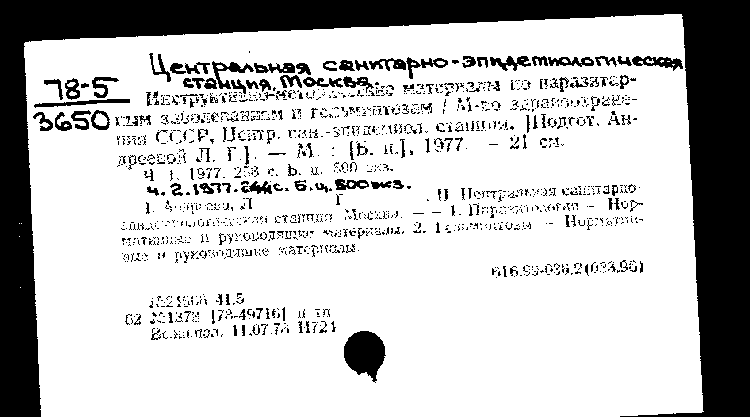 Центральная санитарно-эпидемиологическая
станция, Москва.
78-5
3650
Инструктивно-методические материалы по паразитар-
ным заболеваниям и гельминтозам / М-во здравоохране-
ния СССР, Центр. сан.-эпидемиол. станция. [Подгот. Ан-
дреевой Л. Г.]. — М. : [Б. и.], 1977. — 21 см.
Ч. 1. 1977. 258 с. Б. ц. 800 экз.
Ч. 2. 1977. 244 с. Б. ц. 800 экз.
1. Андреева, Л Г . II. Центральная санитарно-
эпидемиологическая станция. Москва. — — 1. Паразитология — Нор-
мативные и руководящие материалы. 2. Гельминтозы — Норматив-
ные и руководящие материалы.
616.99-036.2(083.96)
41.5
62 №1372 [78-49716] п тп
Всжкпол. 11.07.78 П724